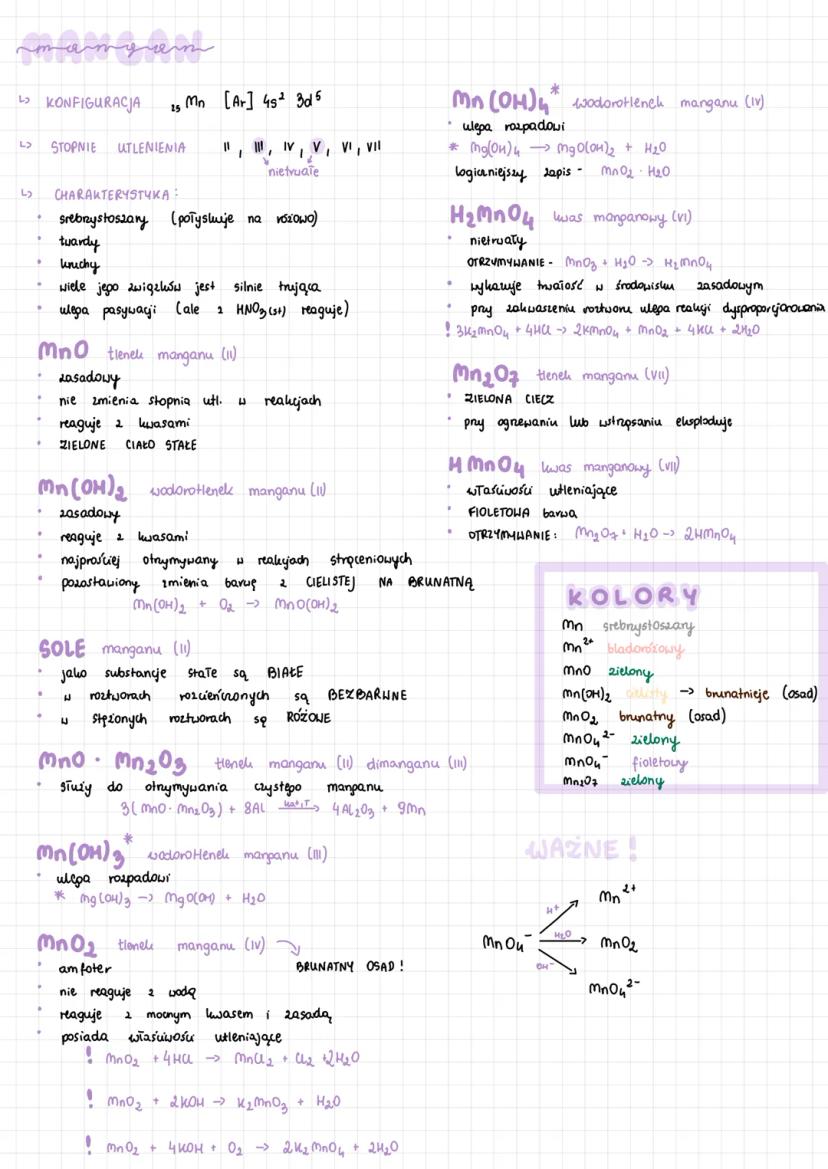 MANGAN
mangan
↳ KONFIGURACJA ₂₅Mn [Ar] 4s² 3d⁵
↳ STOPNIE UTLENIENIA II, III, IV, V, VI, VII
nietrwałe
↳ CHARAKTERYSTYKA:
• srebrzystoszary (połyskuje na różowo)
• twardy
• kruchy
• wiele jego związków jest silnie trująca
• ulega pasywacji (ale z HNO₃(st) reaguje)
MnO tlenek manganu (II)
• zasadowy
• nie zmienia stopnia utl. w reakcjach
• reaguje z kwasami
• ZIELONE CIAŁO STAŁE
Mn(OH)₂ wodorotlenek manganu (II)
• zasadowy
• reaguje z kwasami
• najprościej otrzymywany w reakcjach strąceniowych
• pozostawiony zmienia barwę z CIELISTEJ NA BRUNATNĄ
Mn(OH)₂ + O₂ → MnO(OH)₂
SOLE manganu (II)
• jako substancje stałe są BIAŁE
• w roztworach rozcieńczonych są BEZBARWNE
• w stężonych roztworach są RÓŻOWE
MnO · Mn₂O₃ tlenek manganu (II) dimanganu (III)
• służy do otrzymywania czystego manganu
3(MnO·Mn₂O₃) + 8Al kat,T→ 4Al₂O₃ + 9Mn
Mn(OH)₃* wodorotlenek manganu (III)
• ulega rozpadowi
* Mg(OH)₃ → MgO(OH) + H₂O
MnO₂ tlenek manganu (IV)
BRUNATNY OSAD!
• amfoter
• nie reaguje z wodą
• reaguje z mocnym kwasem i zasadą
• posiada właściwości utleniające
! MnO₂ + 4HCl → MnCl₂ + Cl₂ + 2H₂O
! MnO₂ + 2KOH → K₂MnO₃ + H₂O
! MnO₂ + 4KOH + O₂ → 2K₂MnO₄ + 2H₂O
Mn(OH)₄* wodorotlenek manganu (IV)
• ulega rozpadowi
* Mg(OH)₄ → MgO(OH)₂ + H₂O
logiczniejszy zapis - MnO₂ · H₂O
H₂MnO₄ kwas manganowy (VI)
• nietrwały
OTRZYMYWANIE - MnO₃ + H₂O → H₂MnO₄
• wykazuje trwałość w środowisku zasadowym
• przy zakwaszeniu roztworu ulega reakcji dysproporcjonowania
! 3K₂MnO₄ + 4HCl → 2KMnO₄ + MnO₂ + 4KCl + 2H₂O
Mn₂O₇ tlenek manganu (VII)
• ZIELONA CIECZ
• przy ogrzewaniu lub wstrząsaniu eksploduje
HMnO₄ kwas manganowy (VII)
• właściwości utleniające
• FIOLETOWA barwa
• OTRZYMYWANIE: Mn₂O₇ + H₂O → 2HMnO₄
KOLORY
Mn srebrzystoszary
Mn²⁺ bladoróżowy
MnO zielony
Mn(OH)₂ cielisty → brunatnieje (osad)
MnO₂ brunatny (osad)
MnO₄²⁻ zielony
MnO₄⁻ fioletowy
Mn₂O₇ zielony
WAŻNE!
H⁺ Mn²⁺
MnO₄⁻ H₂O MnO₂
OH⁻ MnO₄²⁻